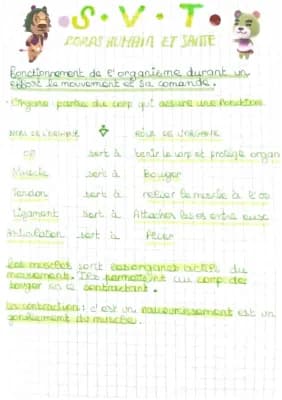 S.V.T.
CORPS HUMAIN ET SANTE
Fonctionnement de l'organisme durant un
effort le mouvement et sa comande.
• Organe: partie du corp qui assure une fonction
NOM DE L'ORGANE RÔLE DE L'ORGANE
os sert à tenir le corp et protège organ
Muscle sert à Bouger
Tendon sert à relier le muscle à l'os
Ligament sert à Attacher les os entre eux
Articulation sert à Plier
Les muscles sont les organes actifs du
mouvement. Ils permettent au corp de
bouger en se contractant.
La contraction: c'est un raccourcissement et un
gonflement du muscle.